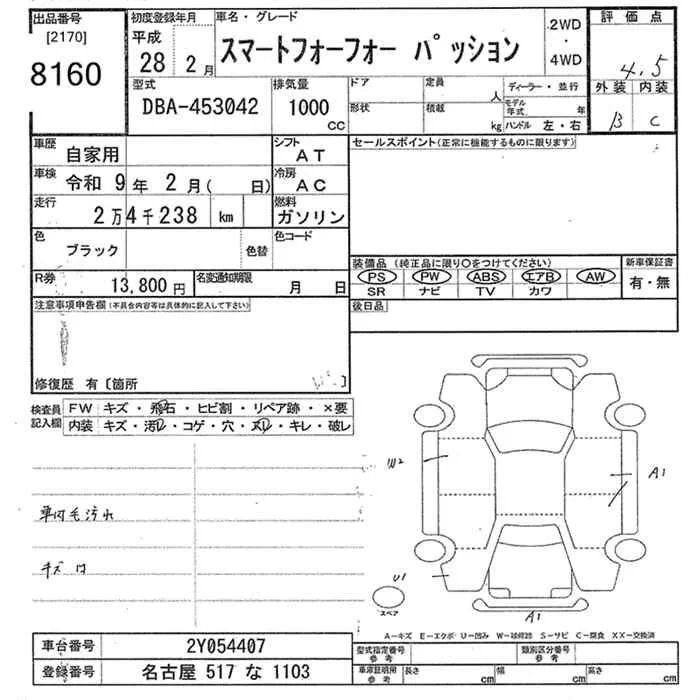 出品番号
[2170]
8160
初度登録年月
平成
28 2月
車名・グレード
スマートフォーフォー パッション
2WD
・
4WD
評価点
4.5
外装 内装
B C
型式
DBA-453042
排気量
1000
CC
ドア
定員
人
形状
積載
kg
ディーラー・並行
モデル年式 年
ハンドル 左・右
車歴
自家用
シフト
AT
セールスポイント(正常に機能するものに限ります)
車検
令和 9 年 2 月( 日)
冷房
AC
走行
2万4千238 km
燃料
ガソリン
色
ブラック
色替
色コード
R券
13,800 円
名変通知期限
月 日
装備品 (純正品に限り○をつけてください)
PS PW ABS エアB AW
SR ナビ TV カワ
新車保証書
有・無
後日品
注意事項申告欄(不具合内容等は具体的に記入して下さい)
修復歴 有〔箇所 〕
検査員記入欄
FW キズ・飛石・ヒビ割・リペア跡・×要
内装 キズ・汚レ・コゲ・穴・ヌレ・キレ・破レ
車内毛汚れ
キズ 凹
W2
A1
U1
A1
スペア
A-キズ E-エクボ U-凹み W-波修跡 S-サビ C-腐食 XX-交換済
車台番号
2Y054407
登録番号
名古屋 517 な 1103
型式指定番号
参考
類別区分番号
参考
車庫証明用
参考
長さ cm
幅 cm
高さ cm